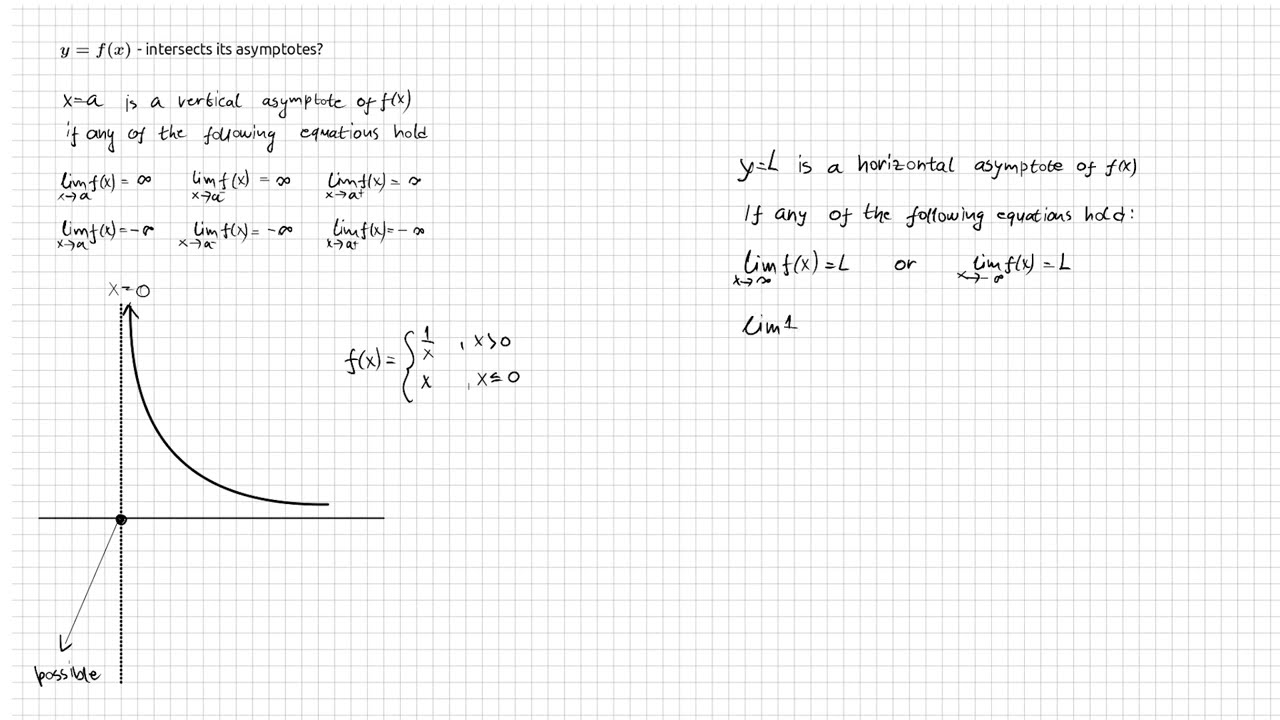 y = f(x) - intersects its asymptotes?
x=a is a vertical asymptote of f(x)
if any of the following equations hold
lim x→a f(x) = ∞ lim x→a⁻ f(x) = ∞ lim x→a⁺ f(x) = ∞
lim x→a f(x) = -∞ lim x→a⁻ f(x) = -∞ lim x→a⁺ f(x) = -∞
x=0
f(x) = { 1/x , x>0
x , x≤0
possible
y=L is a horizontal asymptote of f(x)
If any of the following equations hold:
lim x→∞ f(x) = L or lim x→-∞ f(x) = L
lim 1